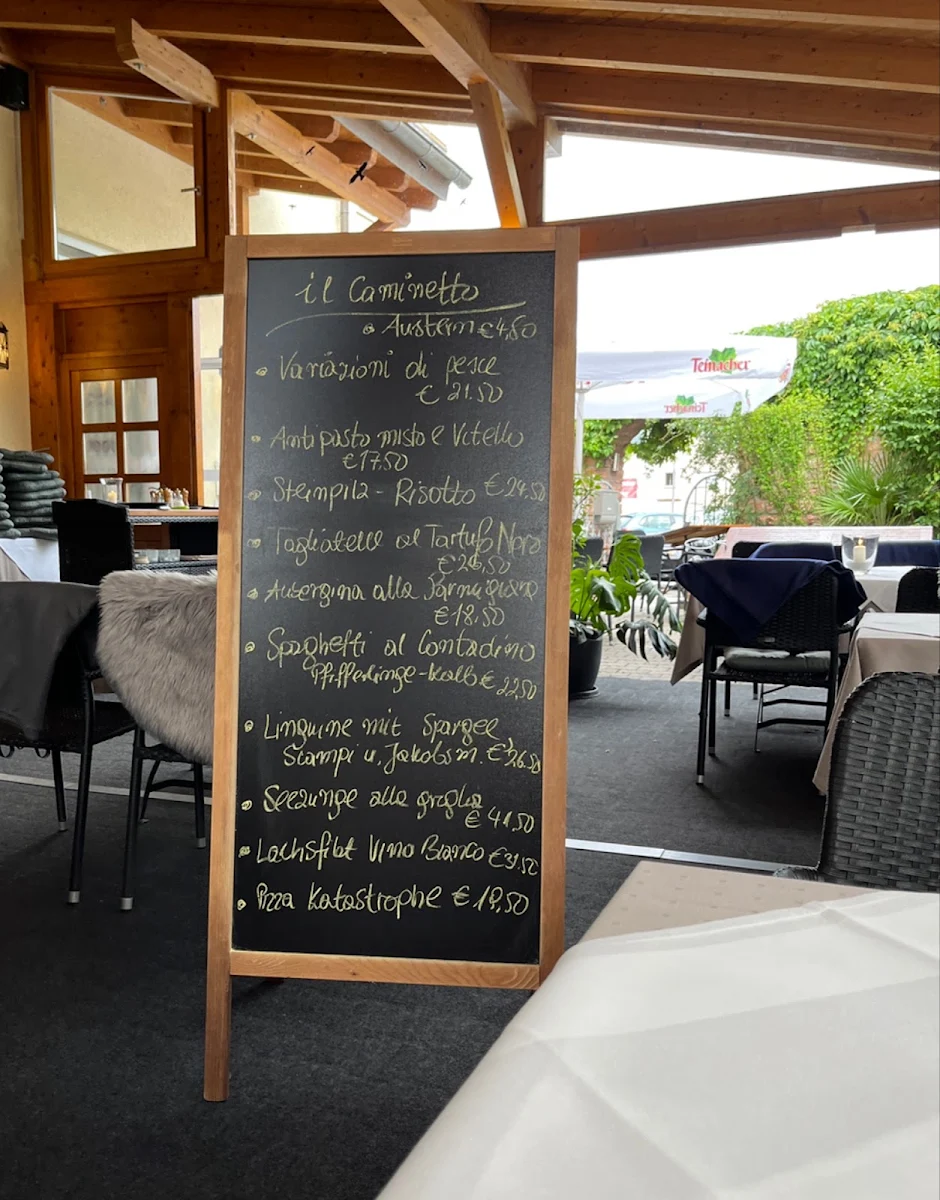 il Caminetto
Austern €4,50
Variazioni di pesce
€ 21.50
Antipasto misto e Vitello
€17,50
Steinpilz - Risotto €24,50
Tagliatelle al Tartufo Nero
€26,50
Aubergina alla Parmigiana
€18,50
Spaghetti al Contadino
Pfifferlinge - Kalb € 22,50
Linguine mit Spargel,
Scampi u. Jakobsm. €26,50
Seezunge alla griglia
€ 41,50
Lachsfilet Vino Bianco €31,50
Pizza Katastrophe € 19,50
Teinacher
Teinacher